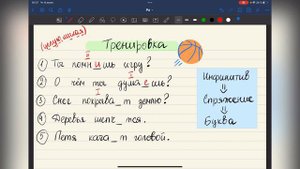 Тренировка
① Ты помнишь игру?
② О чём ты думаешь?
③ Снег покрыва_т землю?
④ Деревья шепч_тся.
⑤ Петя кача_т головой.
Инфинитив
⇓
Спряжение
⇓
Буква